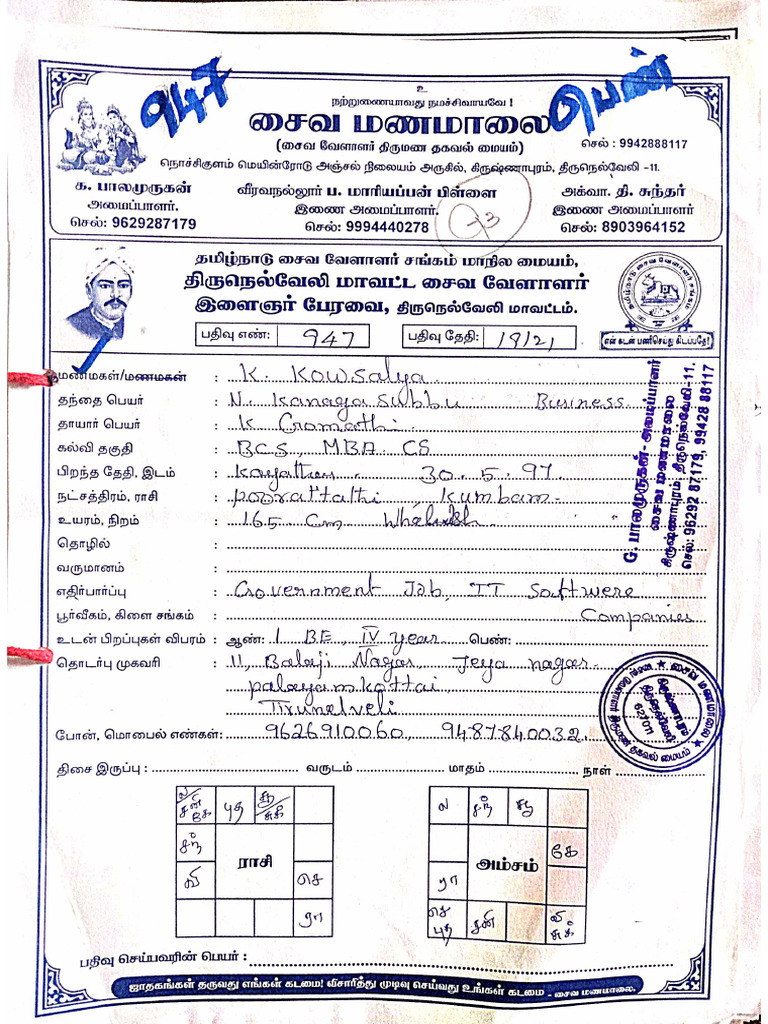 947
பெண்
உ
நற்றுணையாவது நமச்சிவாயவே !
சைவ மணமாலை
(சைவ வேளாளர் திருமண தகவல் மையம்)
செல் : 9942888117
நொச்சிகுளம் மெயின்ரோடு அஞ்சல் நிலையம் அருகில், கிருஷ்ணாபுரம், திருநெல்வேலி -11.
க. பாலமுருகன் வீரவநல்லூர் ப. மாரியப்பன் பிள்ளை அக்வா. தி. சுந்தர்
அமைப்பாளர். இணை அமைப்பாளர். இணை அமைப்பாளர்
செல்: 9629287179 செல்: 9994440278 செல்: 8903964152
தமிழ்நாடு சைவ வேளாளர் சங்கம் மாநில மையம்,
திருநெல்வேலி மாவட்ட சைவ வேளாளர்
இளைஞர் பேரவை, திருநெல்வேலி மாவட்டம்.
என் கடன் பணிசெய்து கிடப்பதே!
பதிவு எண்: 947 பதிவு தேதி: 18/21
மணமகள்/மணமகன் : K. Kowsalya
தந்தை பெயர் : N. Kanaga Subbu Business
தாயார் பெயர் : K Gomathi
கல்வி தகுதி : BCS, MBA CS
பிறந்த தேதி, இடம் : Kayathar 30.5.97
நட்சத்திரம், ராசி : Poorattathi Kumbam
உயரம், நிறம் : 165 Cm
தொழில் :
வருமானம் :
எதிர்பார்ப்பு : Government Job, IT Software
பூர்வீகம், கிளை சங்கம் : Companies
உடன் பிறப்புகள் விபரம் : ஆண்: 1 BE, IV year பெண்:
தொடர்பு முகவரி : 11, Balaji Nagar, Jeya nagar
palayamkottai
Tirunelveli
போன், மொபைல் எண்கள்: 9626910060 9487840032
G. பாலமுருகன்-அமைப்பாளர்
சைவ மணமாலை
கிருஷ்ணாபுரம், திருநெல்வேலி-11.
செல்: 96292 87179, 99428 88117
சைவ மணமாலை
திருமண தகவல் மையம்
கிருஷ்ணாபுரம்
திருநெல்வேலி
627011
திசை இருப்பு : வருடம் : மாதம் : நாள் :
ல சனி கே புத சூ/சுக்
சந்
ராசி
வி செ
ரா
ல சந் சூ
கே
அம்சம்
ரா
செ புத சனி வி சுக்
பதிவு செய்பவரின் பெயர் :
ஜாதகங்கள் தருவது எங்கள் கடமை! விசாரித்து முடிவு செய்வது உங்கள் கடமை - சைவ மணமாலை.